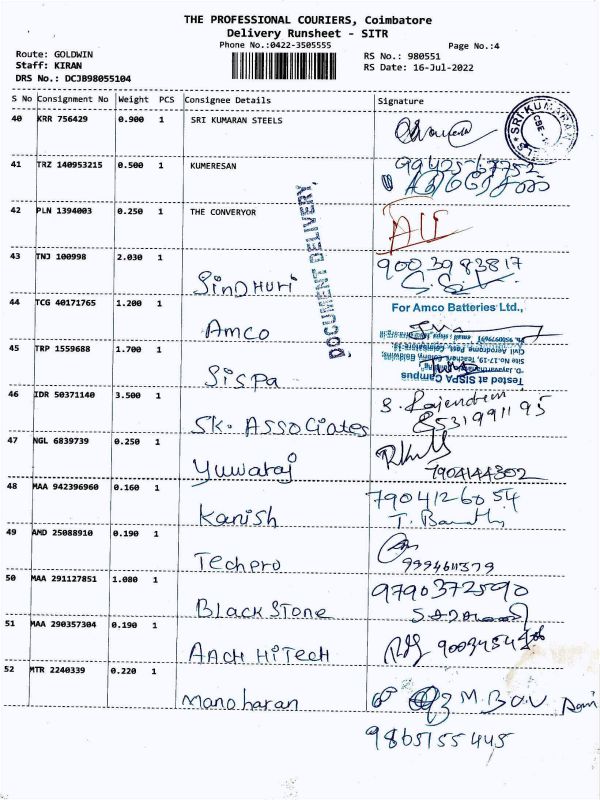 THE PROFESSIONAL COURIERS, Coimbatore
Delivery Runsheet - SITR
Phone No.:0422-3505555
Page No.:4
Route: GOLDWIN
RS No.: 980551
Staff: KIRAN
RS Date: 16-Jul-2022
DRS No.: DCJB98055104
S No Consignment No Weight PCS Consignee Details Signature
40 KRR 756429 0.900 1 SRI KUMARAN STEELS
SRI KUMARAN
CBE-1
41 TRZ 140953215 0.500 1 KUMERESAN
42 PLN 1394003 0.250 1 THE CONVERYOR
DOCUMENT DELIVERY
43 TNJ 100998 2.030 1
SinDHuri
9003983817
44 TCG 40171765 1.200 1
For Amco Batteries Ltd.,
Amco
45 TRP 1559688 1.700 1
Sispa
Tested at SISPA Campus
46 IDR 50371140 3.500 1
SK. ASSOCiates
S. Rajendren
8531991195
47 NGL 6839739 0.250 1
Yuwaraj
7904144302
48 MAA 942396960 0.160 1
Kanish
7904126054
49 AMD 25088910 0.190 1
Techpro
9994611379
50 MAA 291127851 1.080 1
BLack Stone
9790372590
51 MAA 290357304 0.190 1
AACH HiTech
52 MTR 2240339 0.220 1
Manoharan
9865155445